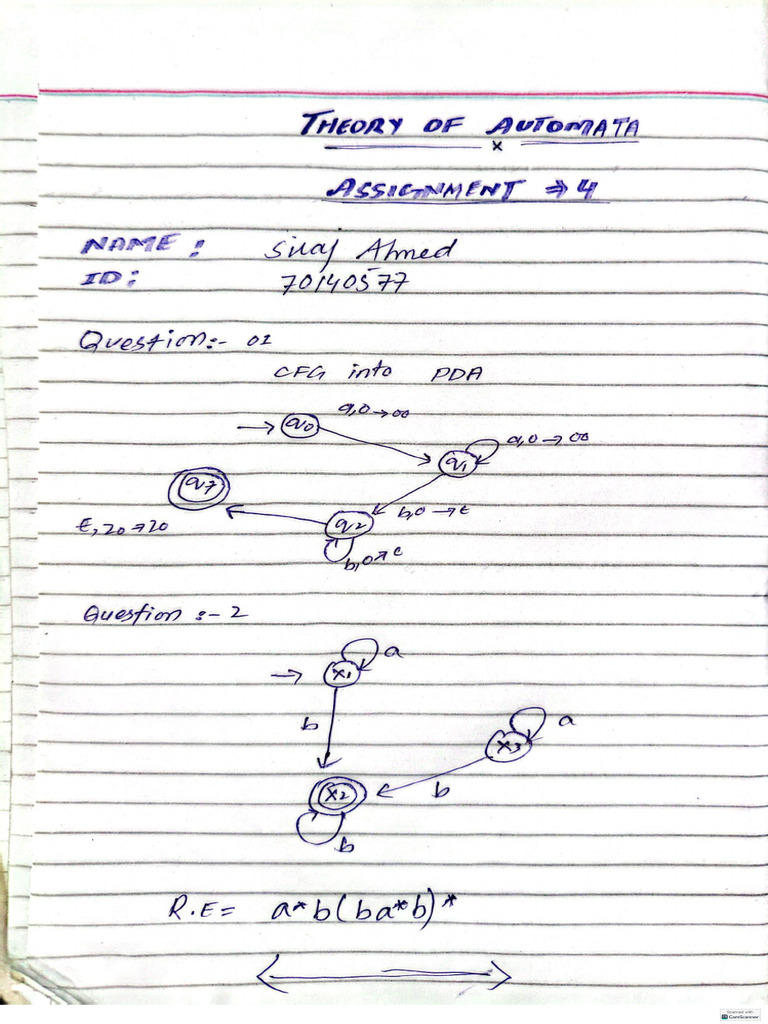 THEORY OF AUTOMATA
x
ASSIGNMENT ⇒ 4
NAME : Siraj Ahmed
ID: 70140577
Question:- 01
CFG into PDA
a,0→00
q0
a,0→00
q1
q7
b,0→ε
q2
ε,z0→z0
b,0→ε
Question :- 2
a
x1
b
a
x3
x2
b
b
R.E = a*b(ba*b)*
Scanned with
CamScanner